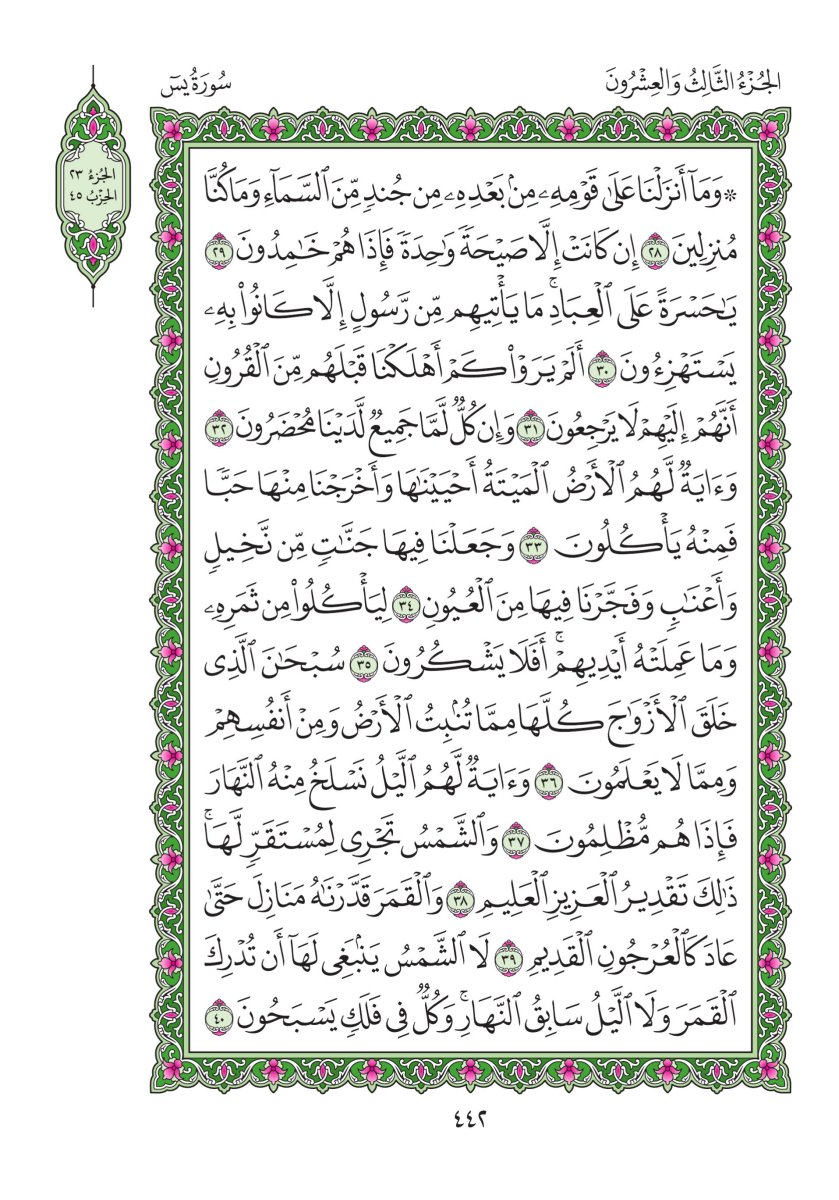 الجُزْءُ الثَّالِثُ وَالعِشْرُونَ
سُورَةُ يسٓ
الجُزءُ ٢٣
الحِزْبُ ٤٥
۞ وَمَآ أَنزَلْنَا عَلَىٰ قَوْمِهِۦ مِنۢ بَعْدِهِۦ مِن جُندٍ مِّنَ ٱلسَّمَآءِ وَمَا كُنَّا
مُنزِلِينَ ٢٨ إِن كَانَتْ إِلَّا صَيْحَةً وَٰحِدَةً فَإِذَا هُمْ خَٰمِدُونَ ٢٩
يَٰحَسْرَةً عَلَى ٱلْعِبَادِۚ مَا يَأْتِيهِم مِّن رَّسُولٍ إِلَّا كَانُوا۟ بِهِۦ
يَسْتَهْزِءُونَ ٣٠ أَلَمْ يَرَوْا۟ كَمْ أَهْلَكْنَا قَبْلَهُم مِّنَ ٱلْقُرُونِ
أَنَّهُمْ إِلَيْهِمْ لَا يَرْجِعُونَ ٣١ وَإِن كُلٌّ لَّمَّا جَمِيعٌ لَّدَيْنَا مُحْضَرُونَ ٣٢
وَءَايَةٌ لَّهُمُ ٱلْأَرْضُ ٱلْمَيْتَةُ أَحْيَيْنَٰهَا وَأَخْرَجْنَا مِنْهَا حَبًّا
فَمِنْهُ يَأْكُلُونَ ٣٣ وَجَعَلْنَا فِيهَا جَنَّٰتٍ مِّن نَّخِيلٍ
وَأَعْنَٰبٍ وَفَجَّرْنَا فِيهَا مِنَ ٱلْعُيُونِ ٣٤ لِيَأْكُلُوا۟ مِن ثَمَرِهِۦ
وَمَا عَمِلَتْهُ أَيْدِيهِمْۚ أَفَلَا يَشْكُرُونَ ٣٥ سُبْحَٰنَ ٱلَّذِى
خَلَقَ ٱلْأَزْوَٰجَ كُلَّهَا مِمَّا تُنۢبِتُ ٱلْأَرْضُ وَمِنْ أَنفُسِهِمْ
وَمِمَّا لَا يَعْلَمُونَ ٣٦ وَءَايَةٌ لَّهُمُ ٱلَّيْلُ نَسْلَخُ مِنْهُ ٱلنَّهَارَ
فَإِذَا هُم مُّظْلِمُونَ ٣٧ وَٱلشَّمْسُ تَجْرِى لِمُسْتَقَرٍّ لَّهَاۚ
ذَٰلِكَ تَقْدِيرُ ٱلْعَزِيزِ ٱلْعَلِيمِ ٣٨ وَٱلْقَمَرَ قَدَّرْنَٰهُ مَنَازِلَ حَتَّىٰ
عَادَ كَٱلْعُرْجُونِ ٱلْقَدِيمِ ٣٩ لَا ٱلشَّمْسُ يَنۢبَغِى لَهَآ أَن تُدْرِكَ
ٱلْقَمَرَ وَلَا ٱلَّيْلُ سَابِقُ ٱلنَّهَارِۚ وَكُلٌّ فِى فَلَكٍ يَسْبَحُونَ ٤٠
٤٤٢